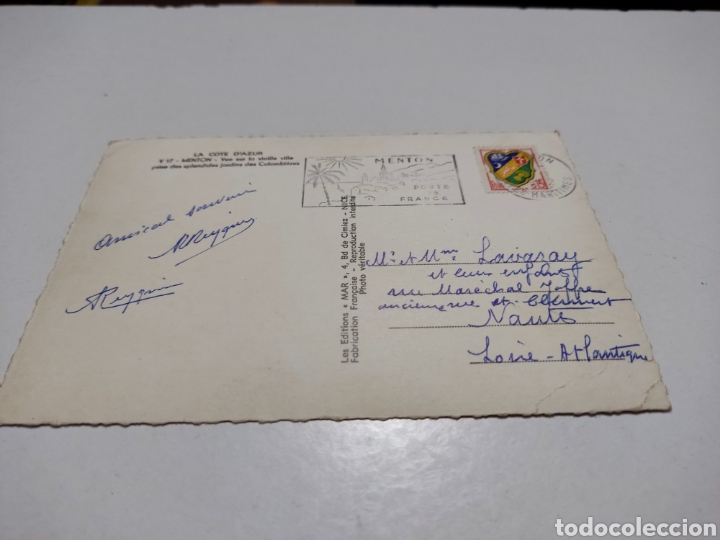 LA COTE D'AZUR
P 17 - MENTON - Vue sur la vieille ville
prise des splendides jardins des Colombières
MENTON
PORTE
FRANCE
MARITIMES
Amical souvenir
Les Editions « MAR », 4, Bd de Cimiez - NICE
Fabrication Française - Reproduction interdite
Photo véritable
Mr & Mme
et leurs enfants
rue Maréchal Joffre
ancienne rue St Clément
Nantes
Loire-Atlantique
todocoleccion